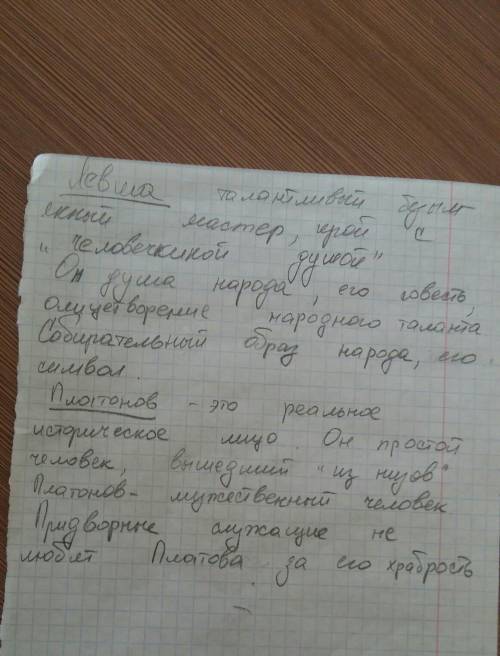 Левша талантливый безым
янный мастер, герой с
"человечкиной душой"
Он душа народа, его совесть,
олицетворение народного таланта
Собирательный образ народа, его
символ.
Платонов - это реальное
историческое лицо. Он простой
человек, вышедший "из низов"
Платонов - мужественный человек
Придворные служащие не
любят Платова за его храбрость